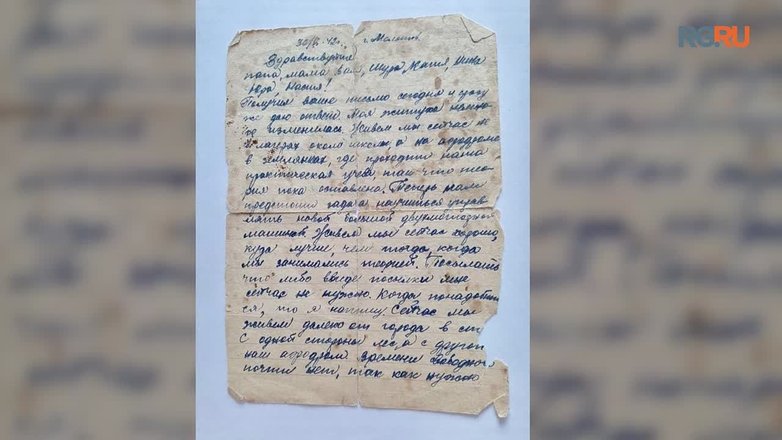 RG.RU
30/V-42г. г. Мелекесс
Здравствуйте
папа, мама Валя, Шура, Мотя, Нина
Юра, Настя!
Получил ваше письмо сегодня и сразу
же даю ответ. Моя житуха немно-
го изменилась. Живём мы сейчас не
в лагерях около школы, а на аэродроме
в землянках, где проходит наша
практическая учеба, так что тео-
рия пока оставлена. Теперь нам
предстоит задача научиться управ-
лять новой большой двухмоторной
машиной. Живем мы сейчас хорошо,
куда лучше, чем тогда, когда
мы занимались теорией. Посылать
что либо ввиде посылки мне
сейчас не нужно. Когда понадобит-
ся, то я напишу. Сейчас мы
живем далеко от города в
С одной стороны лес, а с другой
наш аэродром времени свободного
почти нет, так как нужно